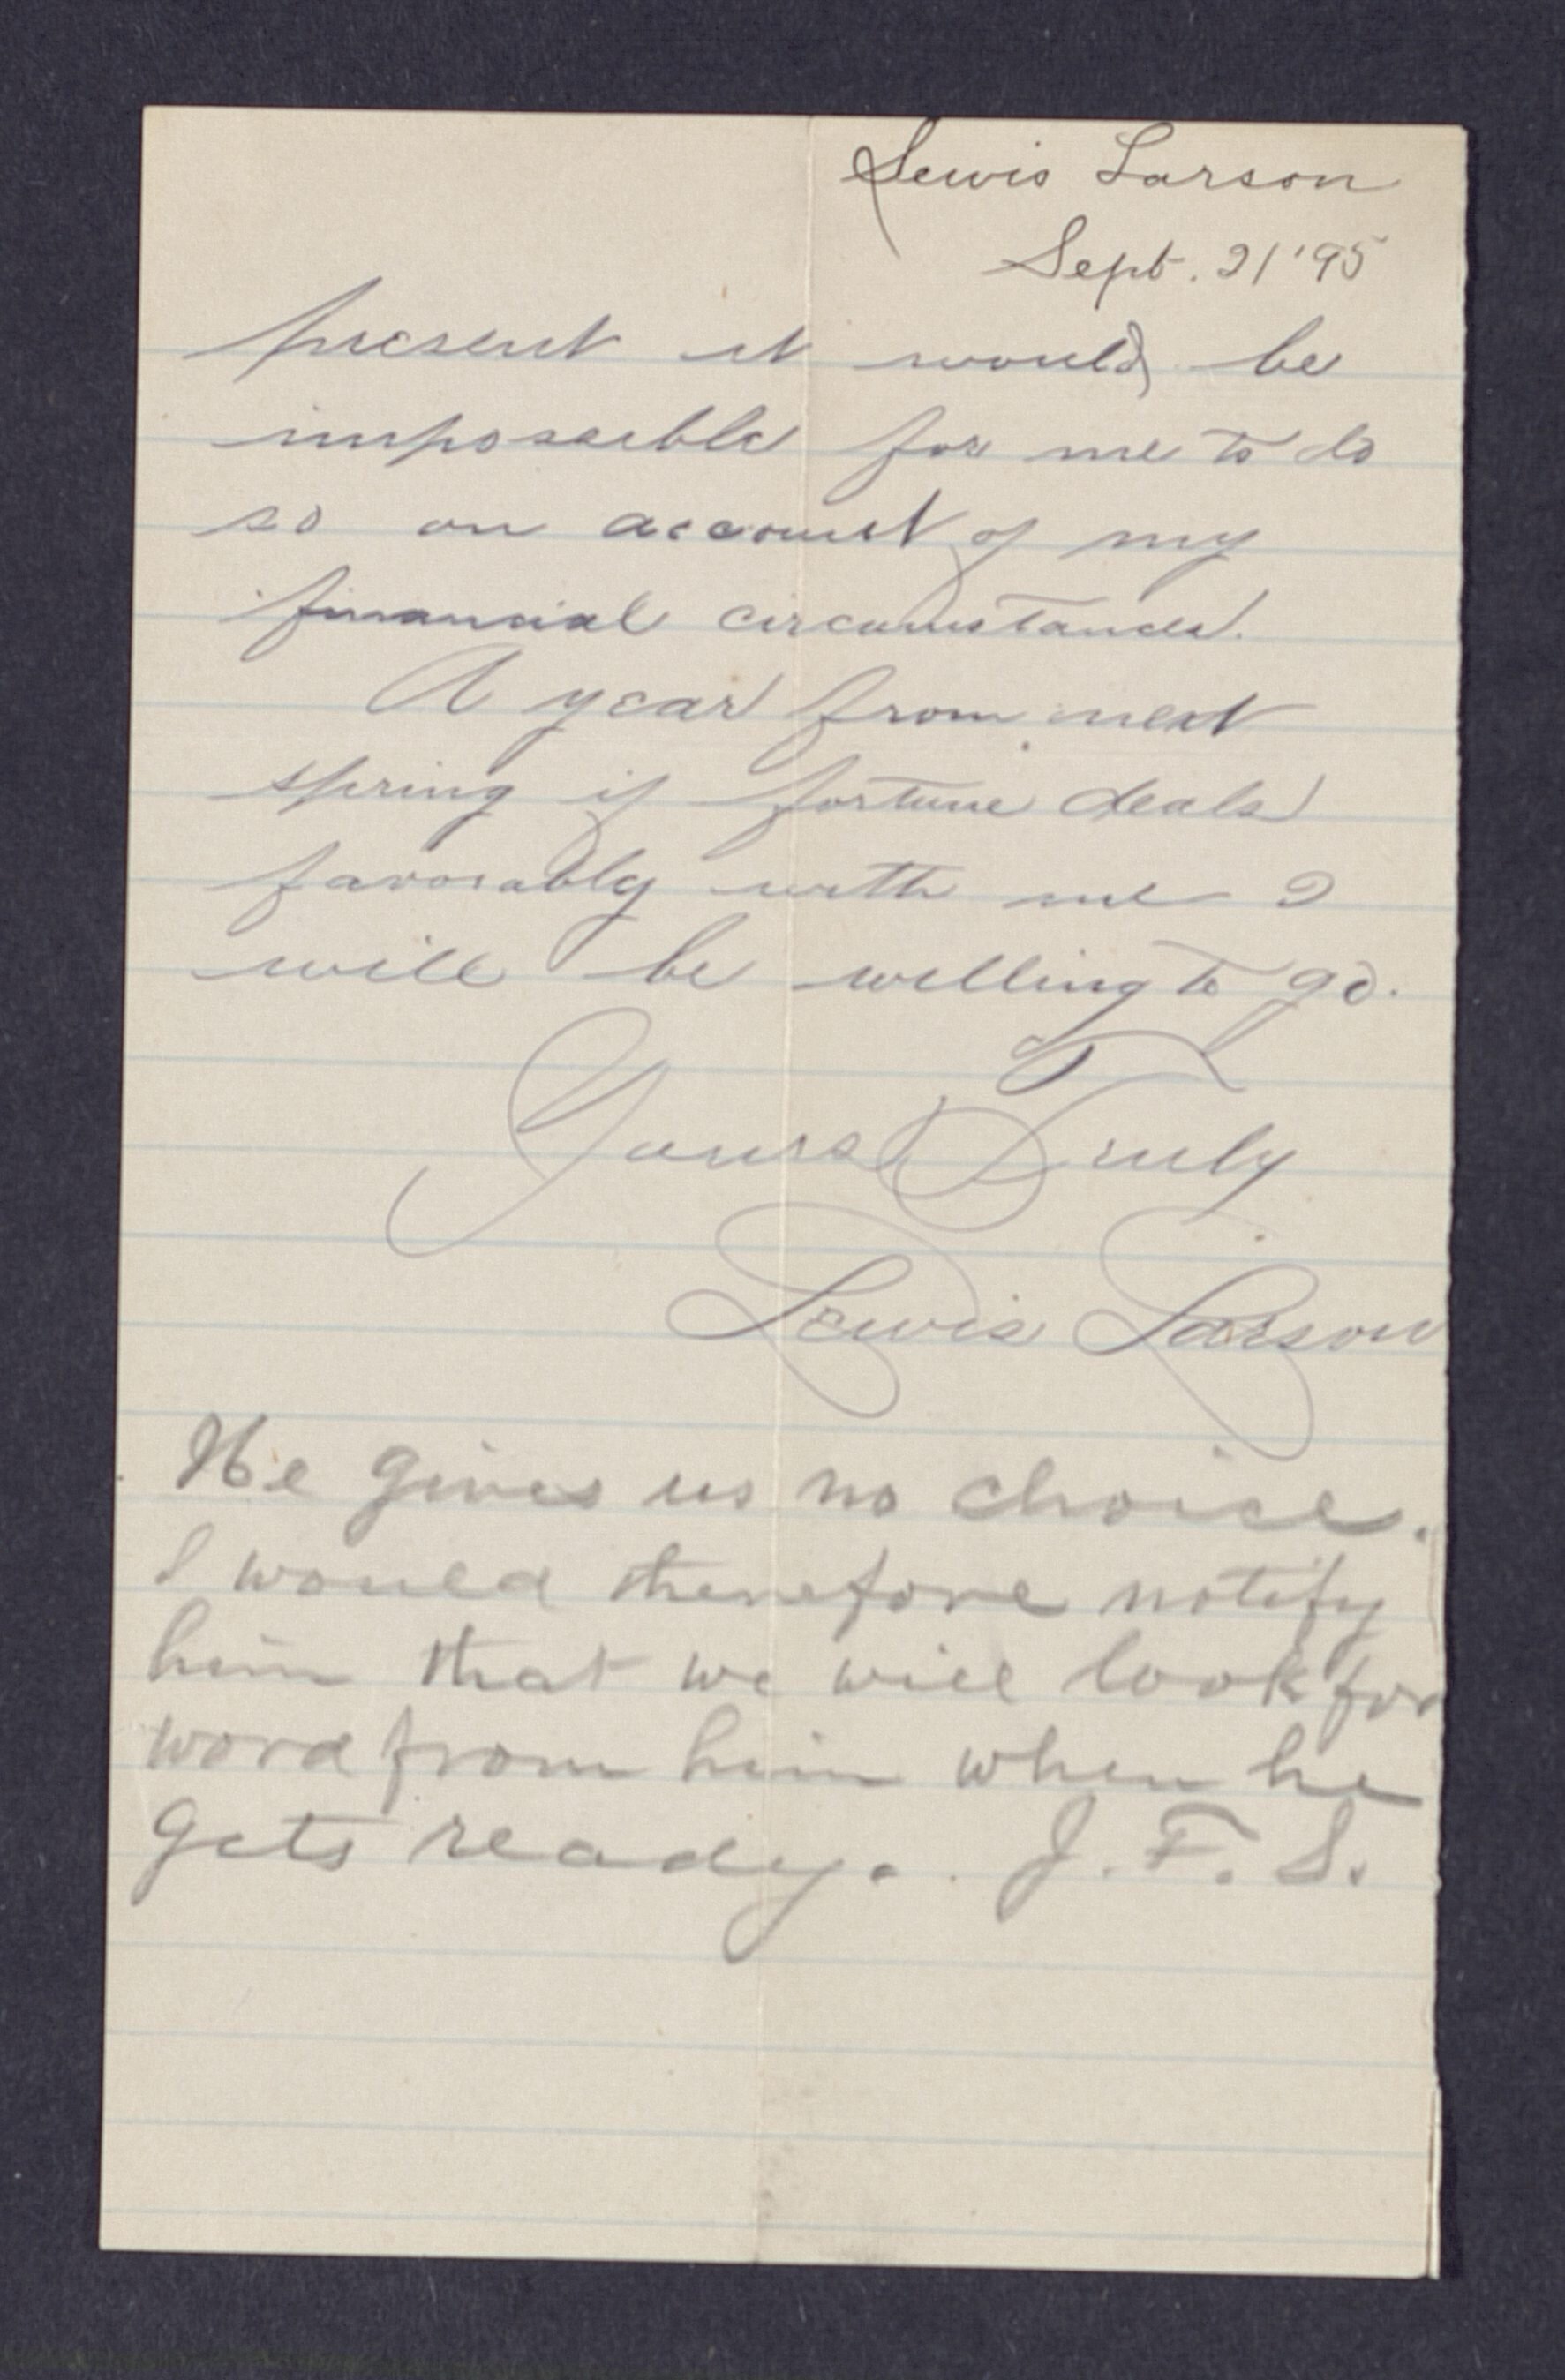 Lewis Larson
Sept. 21 '95
present it would be
impossible for me to do
so on account of my
financial circumstances.
A year from next
spring if fortune deals
favorably with me I
will be willing to go.
Yours Truly
Lewis Larson
He gives us no choice.
I would therefore notify
him that we will look for
word from him when he
gets ready. J. F. S.